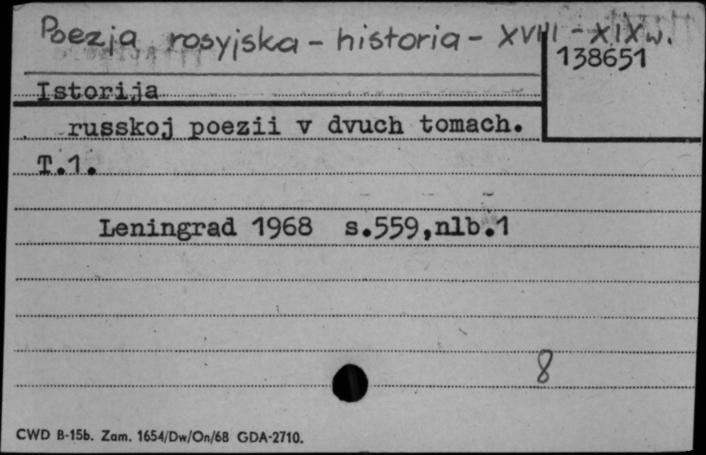 Poezja rosyjska - historia - XVIII - XIX w.
138651
Istorija
russkoj poezii v dvuch tomach.
T.1.
Leningrad 1968 s.559,nlb.1
8
CWD B-15b. Zam. 1654/Dw/On/68 GDA-2710.